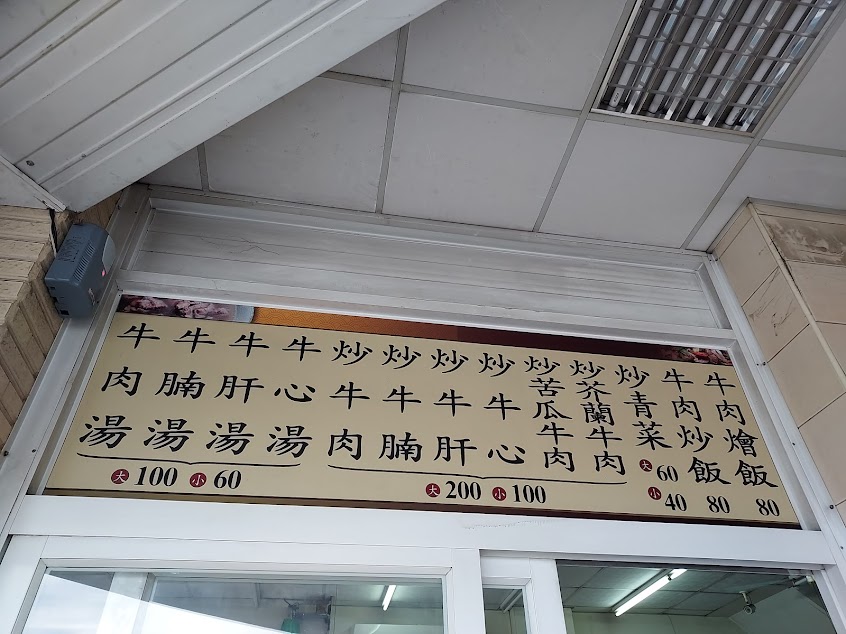 牛肉湯
牛腩湯
牛肝湯
牛心湯
大100 小60
炒牛肉
炒牛腩
炒牛肝
炒牛心
炒苦瓜牛肉
炒芥蘭牛肉
大200 小100
炒青菜
大60
小40
牛肉炒飯
80
牛肉燴飯
80